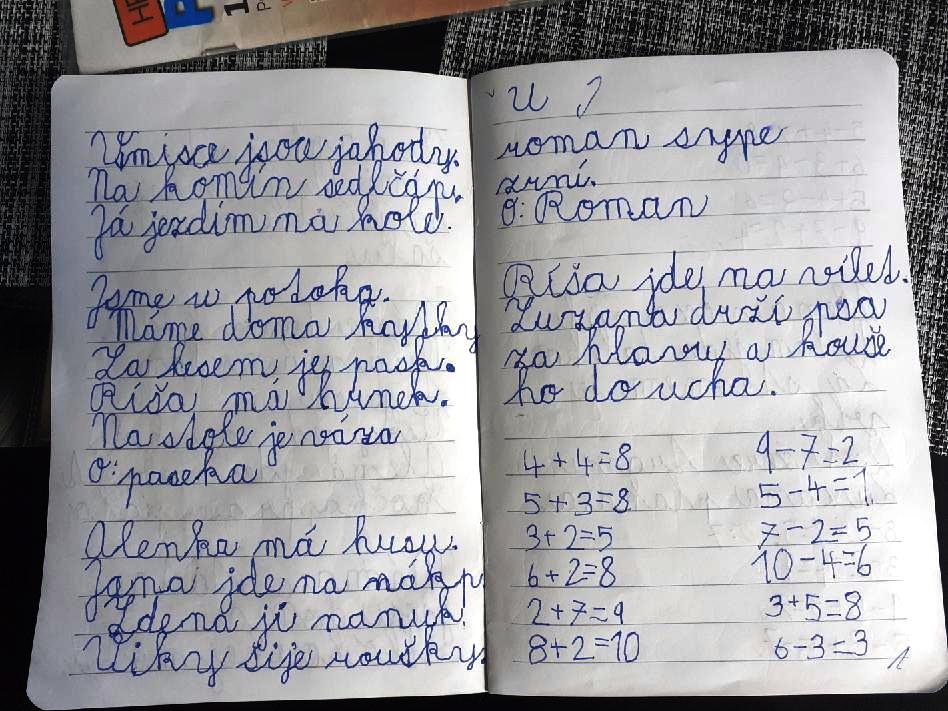 V misce jsou jahody.
Na komín sedl čáp.
Já jezdím na kole.
Jsme u potoka.
Máme doma kaštky
Za lesem je pask.
Ríša má hrnek.
Na stole je váza
O: paseka
Alenka má husu.
Jana jde na nákp
Zdena jí nanuk.
Viky šije roušky.
U J
roman sype
zrní.
O: Roman
Ríša jde na vílet.
Zuzana drží psa
za hlavu a kouše
ho do ucha.
4+4=8 9-7=2
5+3=8 5-4=1
3+2=5 7-2=5
6+2=8 10-4=6
2+7=9 3+5=8
8+2=10 6-3=3
1